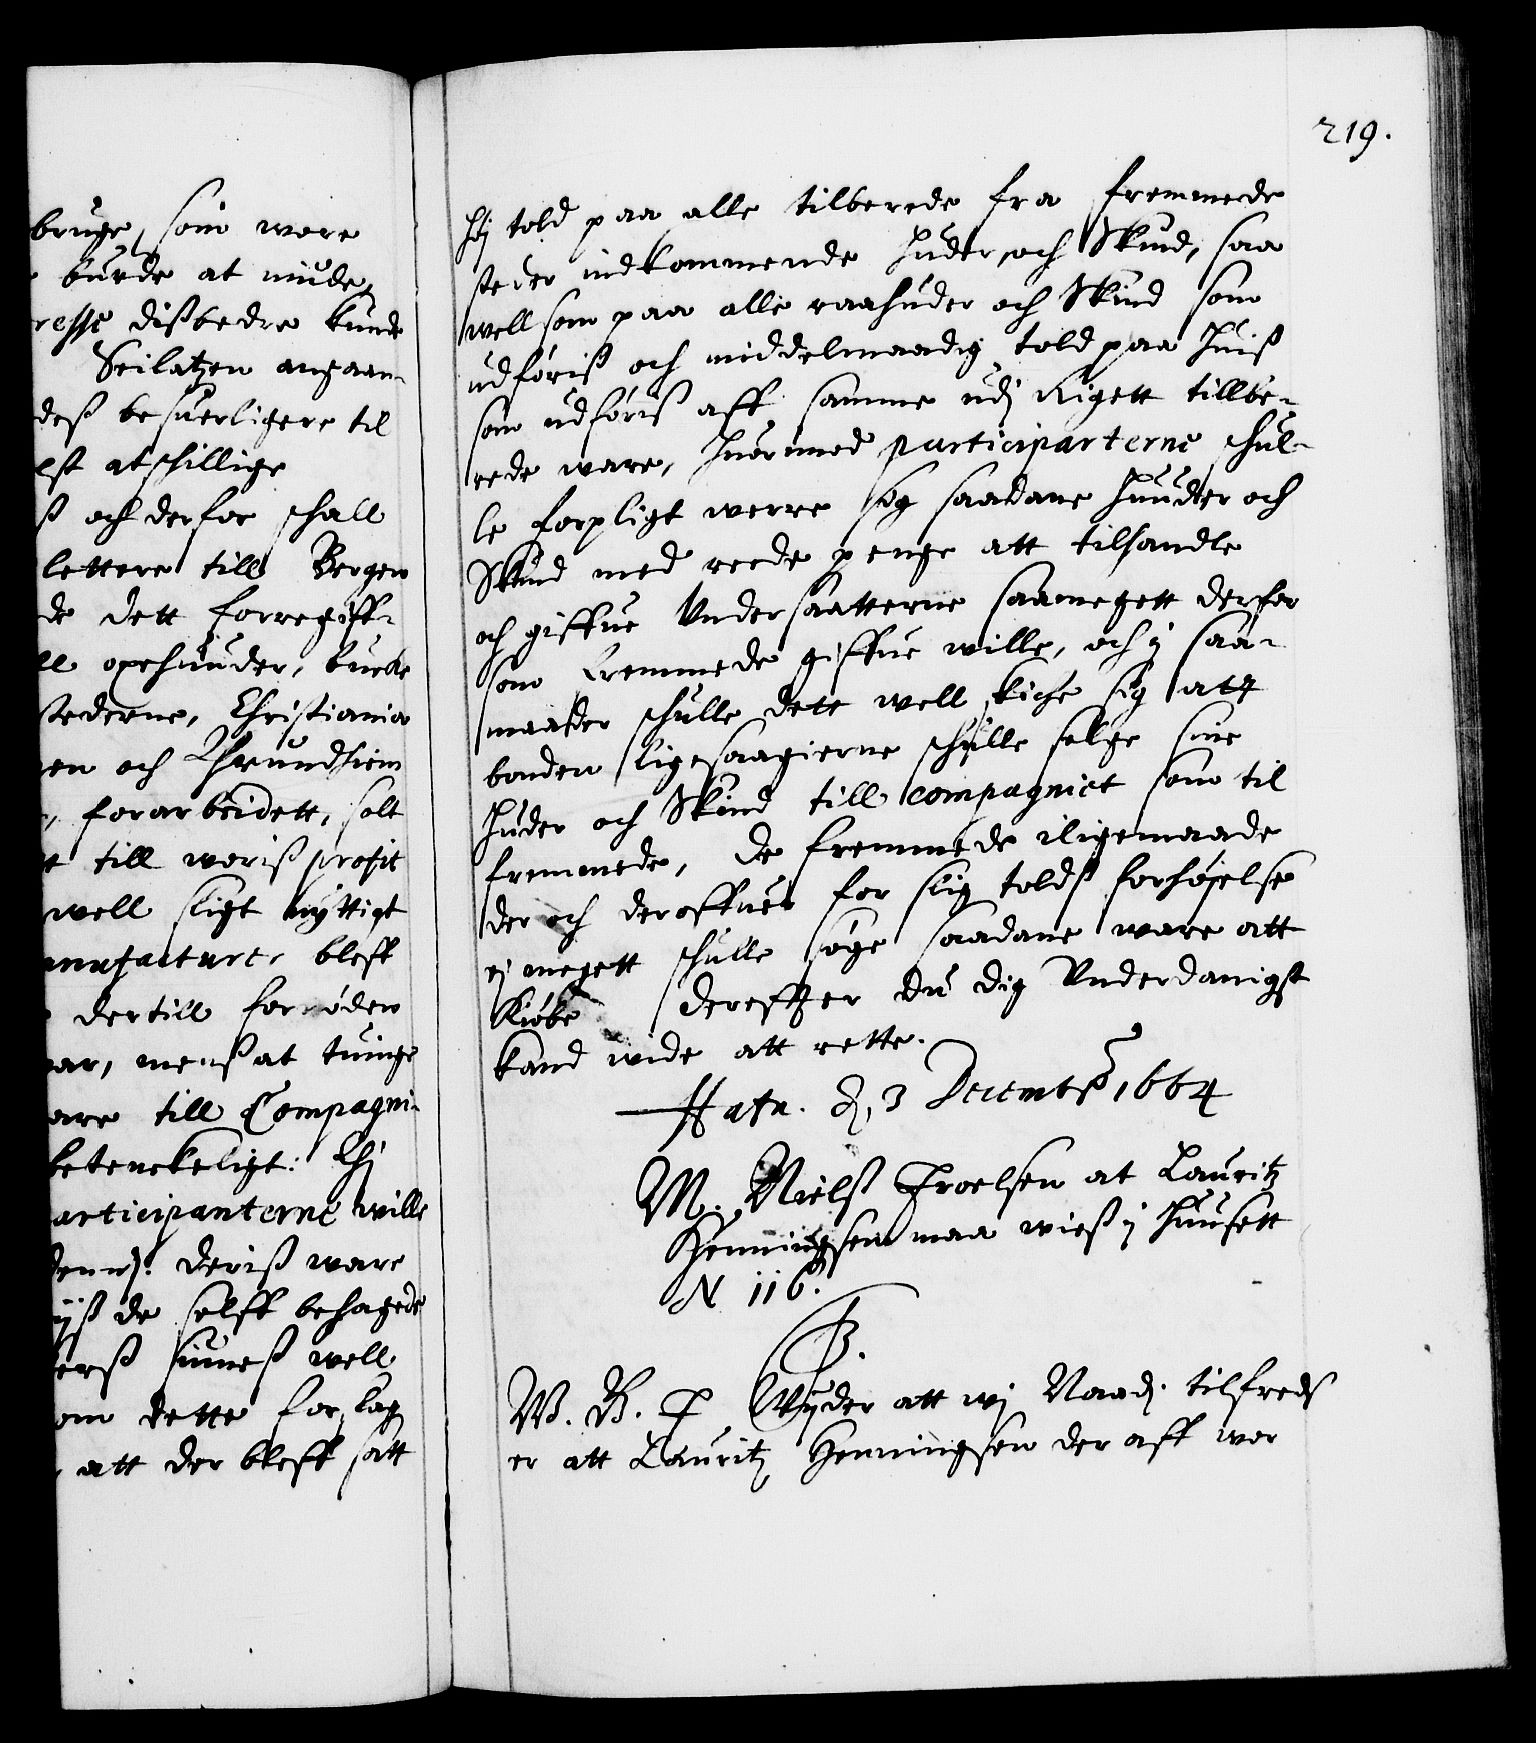 bruge, som wore
burde at niude,
resse dissbedre kunde
Seilatzen angaaen-
dess besuerligere til
lst atschillige
ss och derfor schall
lettere till Bergen
de dett forregiff-
ll oxehuuder, bucke
stederne, Christiania
en och Thrundhiem
forarbeidett, solt
till woriss profit
well sligt nyttigt
anufacture bleff
dertill fornöden
ar, menss at tuinge
are till Compagni-
betenckeligt: Thj
articipanterne wille
deriss ware
yss de selff behagede
erss siuness well
om dette forslag
att der bleff satt
219.
høj told paa alle tilberede fra fremmede
steder indkommende huder och Skind, saa
well som paa alle raahuder och Skind som
udføriss och middelmaadig told paa huiss
som udføris aff samme udj Rigett tillbe-
rede ware, huormed participarterne schul-
le forpligt werre sig saadane huuder och
Skind med reede penge att tilhandle
och giffue Undersaatterne saamegett derfor
som fremmede giffue wille, och j saa-
maader schulle dett well skicke sig att
bonden ligesaagierne schulle selge sine
huder och Skind till compagniet som til
fremmede, de fremmede iligemaade
der och deroffuer for slig tolds forhøjelse
ej megett schulle søge saadane ware att
Kiøbe derefter du dig Underdanigst
kand wide att rette.
Hafn. d. 3 Decembr 1664
M. Nielss Troelsen at Lauritz
Henningsen maa wiess j huusett
N 116.
W. G. T. Wijder att wj Naad. tilfreds
er att Lauritz Henningsen der aff wor